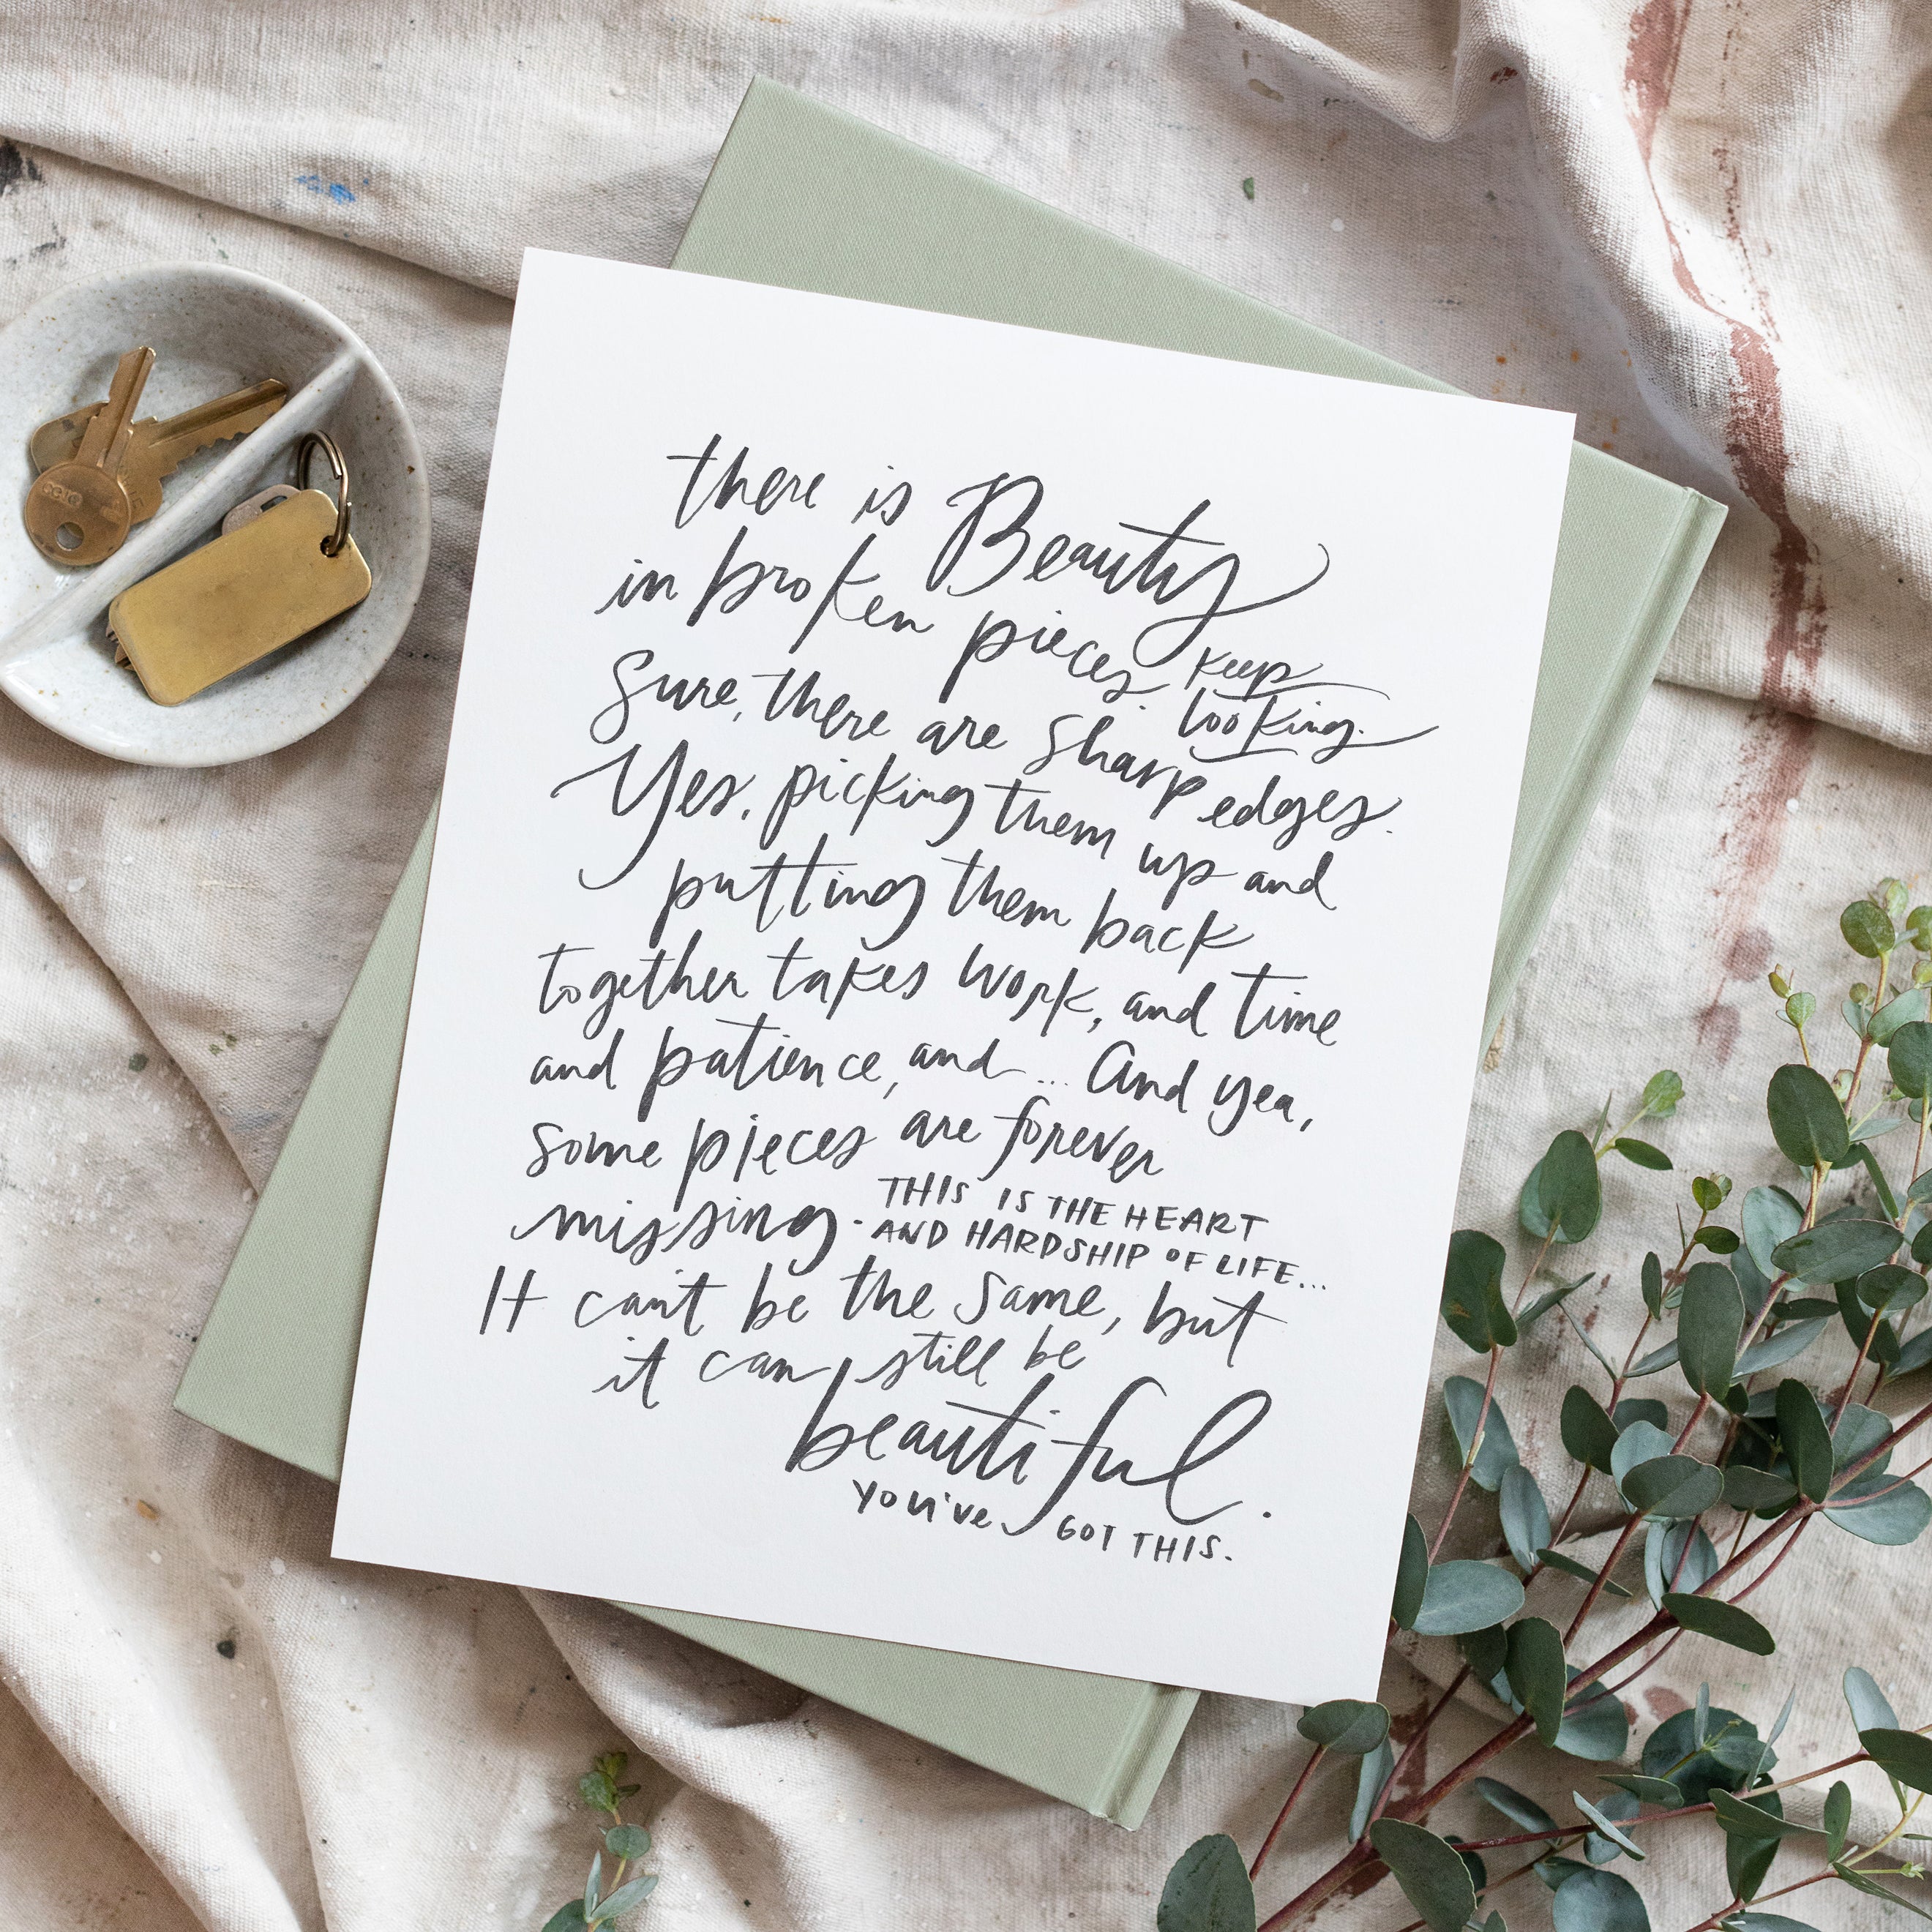 there is Beauty
in broken pieces. keep
looking.
Sure, there are sharp edges.
Yes, picking them up and
putting them back
together takes work, and time
and patience, and... And yea,
some pieces are forever
missing. THIS IS THE HEART
AND HARDSHIP OF LIFE...
It can't be the same, but
it can still be
beautiful.
you've GOT THIS.